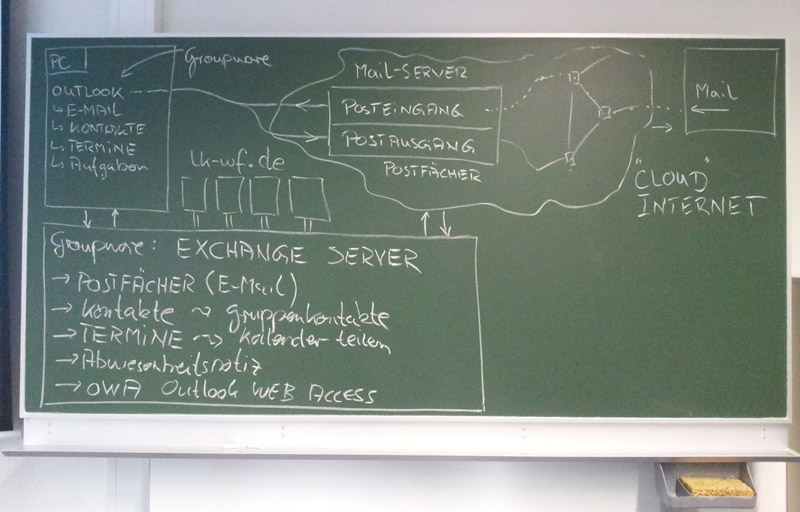 PC
Groupware
OUTLOOK
↳ E-MAIL
↳ KONTAKTE
↳ TERMINE
↳ Aufgaben
lk-wf.de
MAIL-SERVER
POSTEINGANG
POSTAUSGANG
POSTFÄCHER
Mail
"CLOUD"
INTERNET
Groupware: EXCHANGE SERVER
→ POSTFÄCHER (E-Mail)
→ Kontakte ~> gruppenkontakte
→ TERMINE ~> Kalender teilen
→ Abwesenheitsnotiz
→ OWA Outlook WEB ACCESS